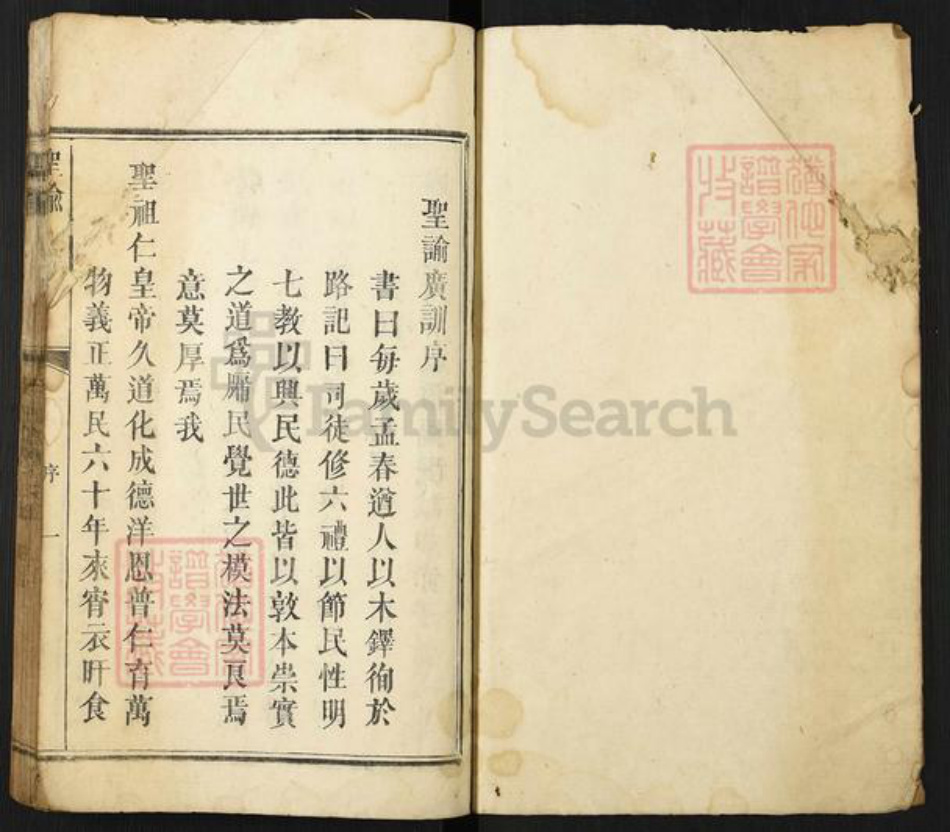 聖諭廣訓序
書曰每歲孟春遒人以木鐸徇於
路記曰司徒修六禮以節民性明
七教以興民德此皆以敦本崇實
之道爲牖民覺世之模法莫良焉
意莫厚焉我
聖祖仁皇帝久道化成德洋恩普仁育萬
物義正萬民六十年來宵衣旰食
聖諭
序
一
譜學會
收藏
譜學會
收藏
FamilySearch